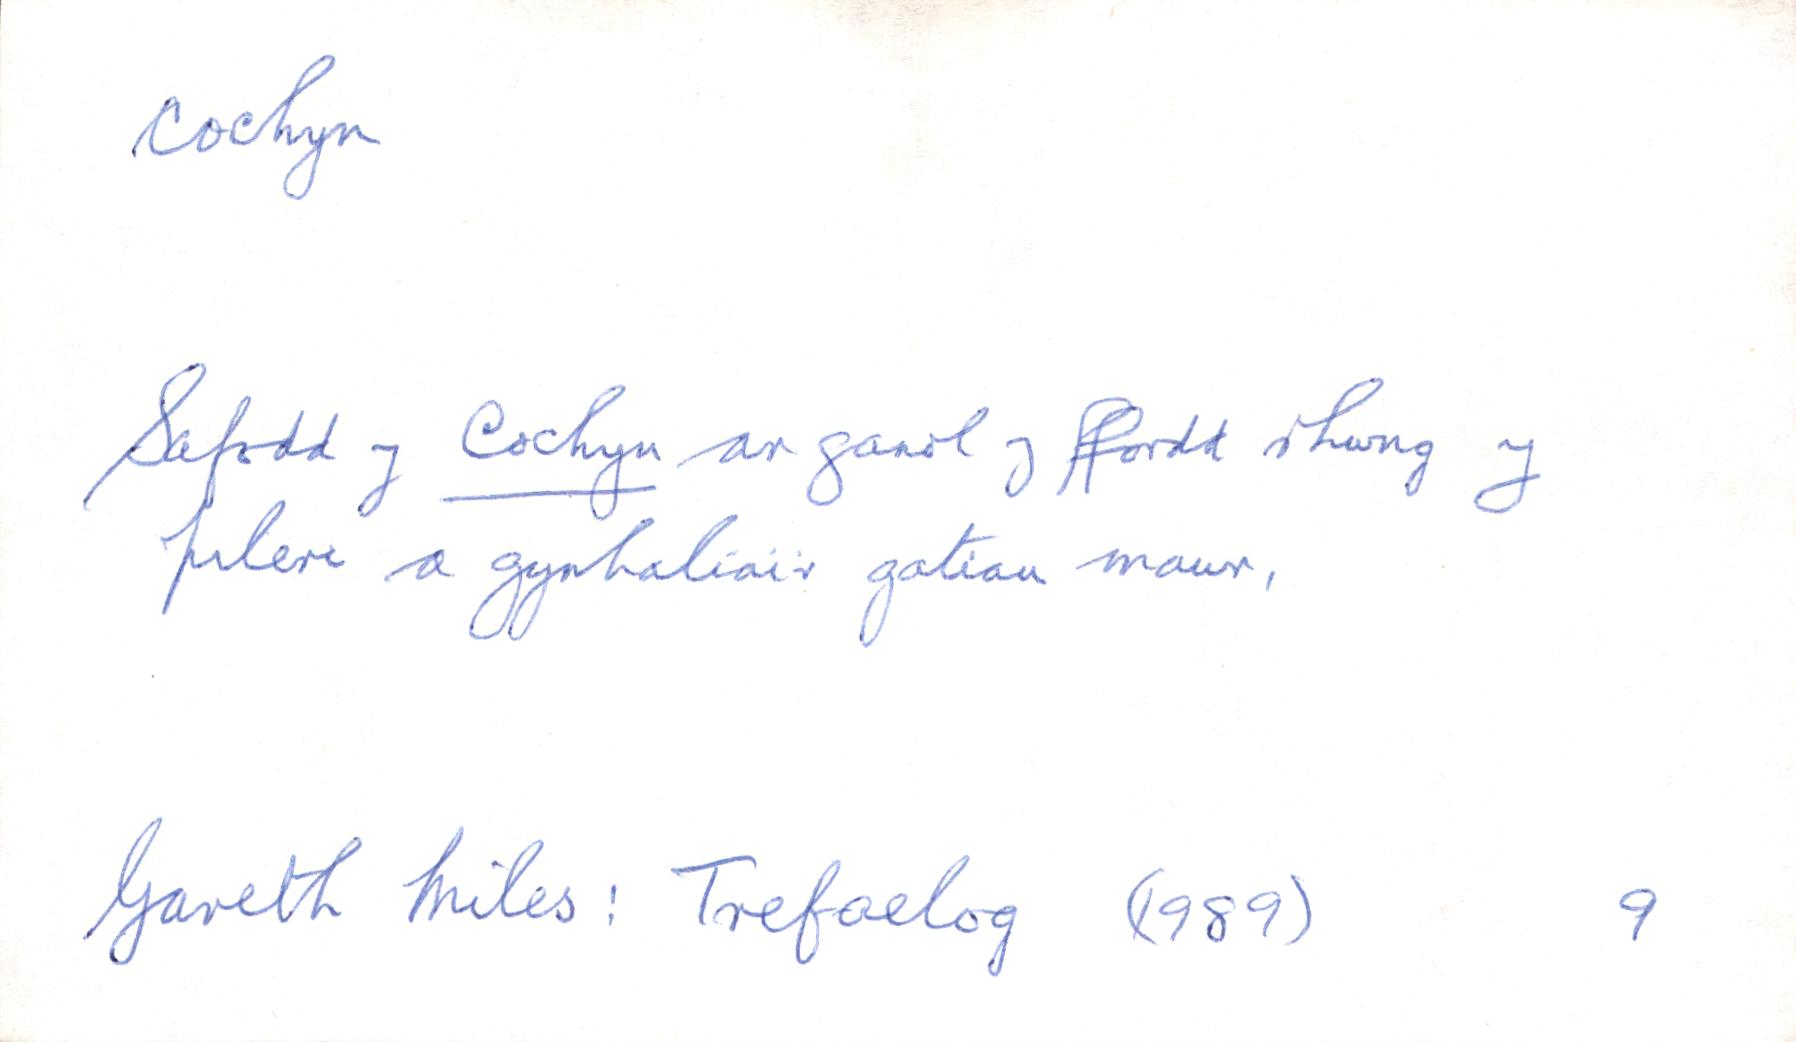 Cochyn
Safodd y Cochyn ar ganol y ffordd rhwng y
pileri a gynhaliai'r gatiau mawr,
Gareth Miles: Trefaelog (1989) 9